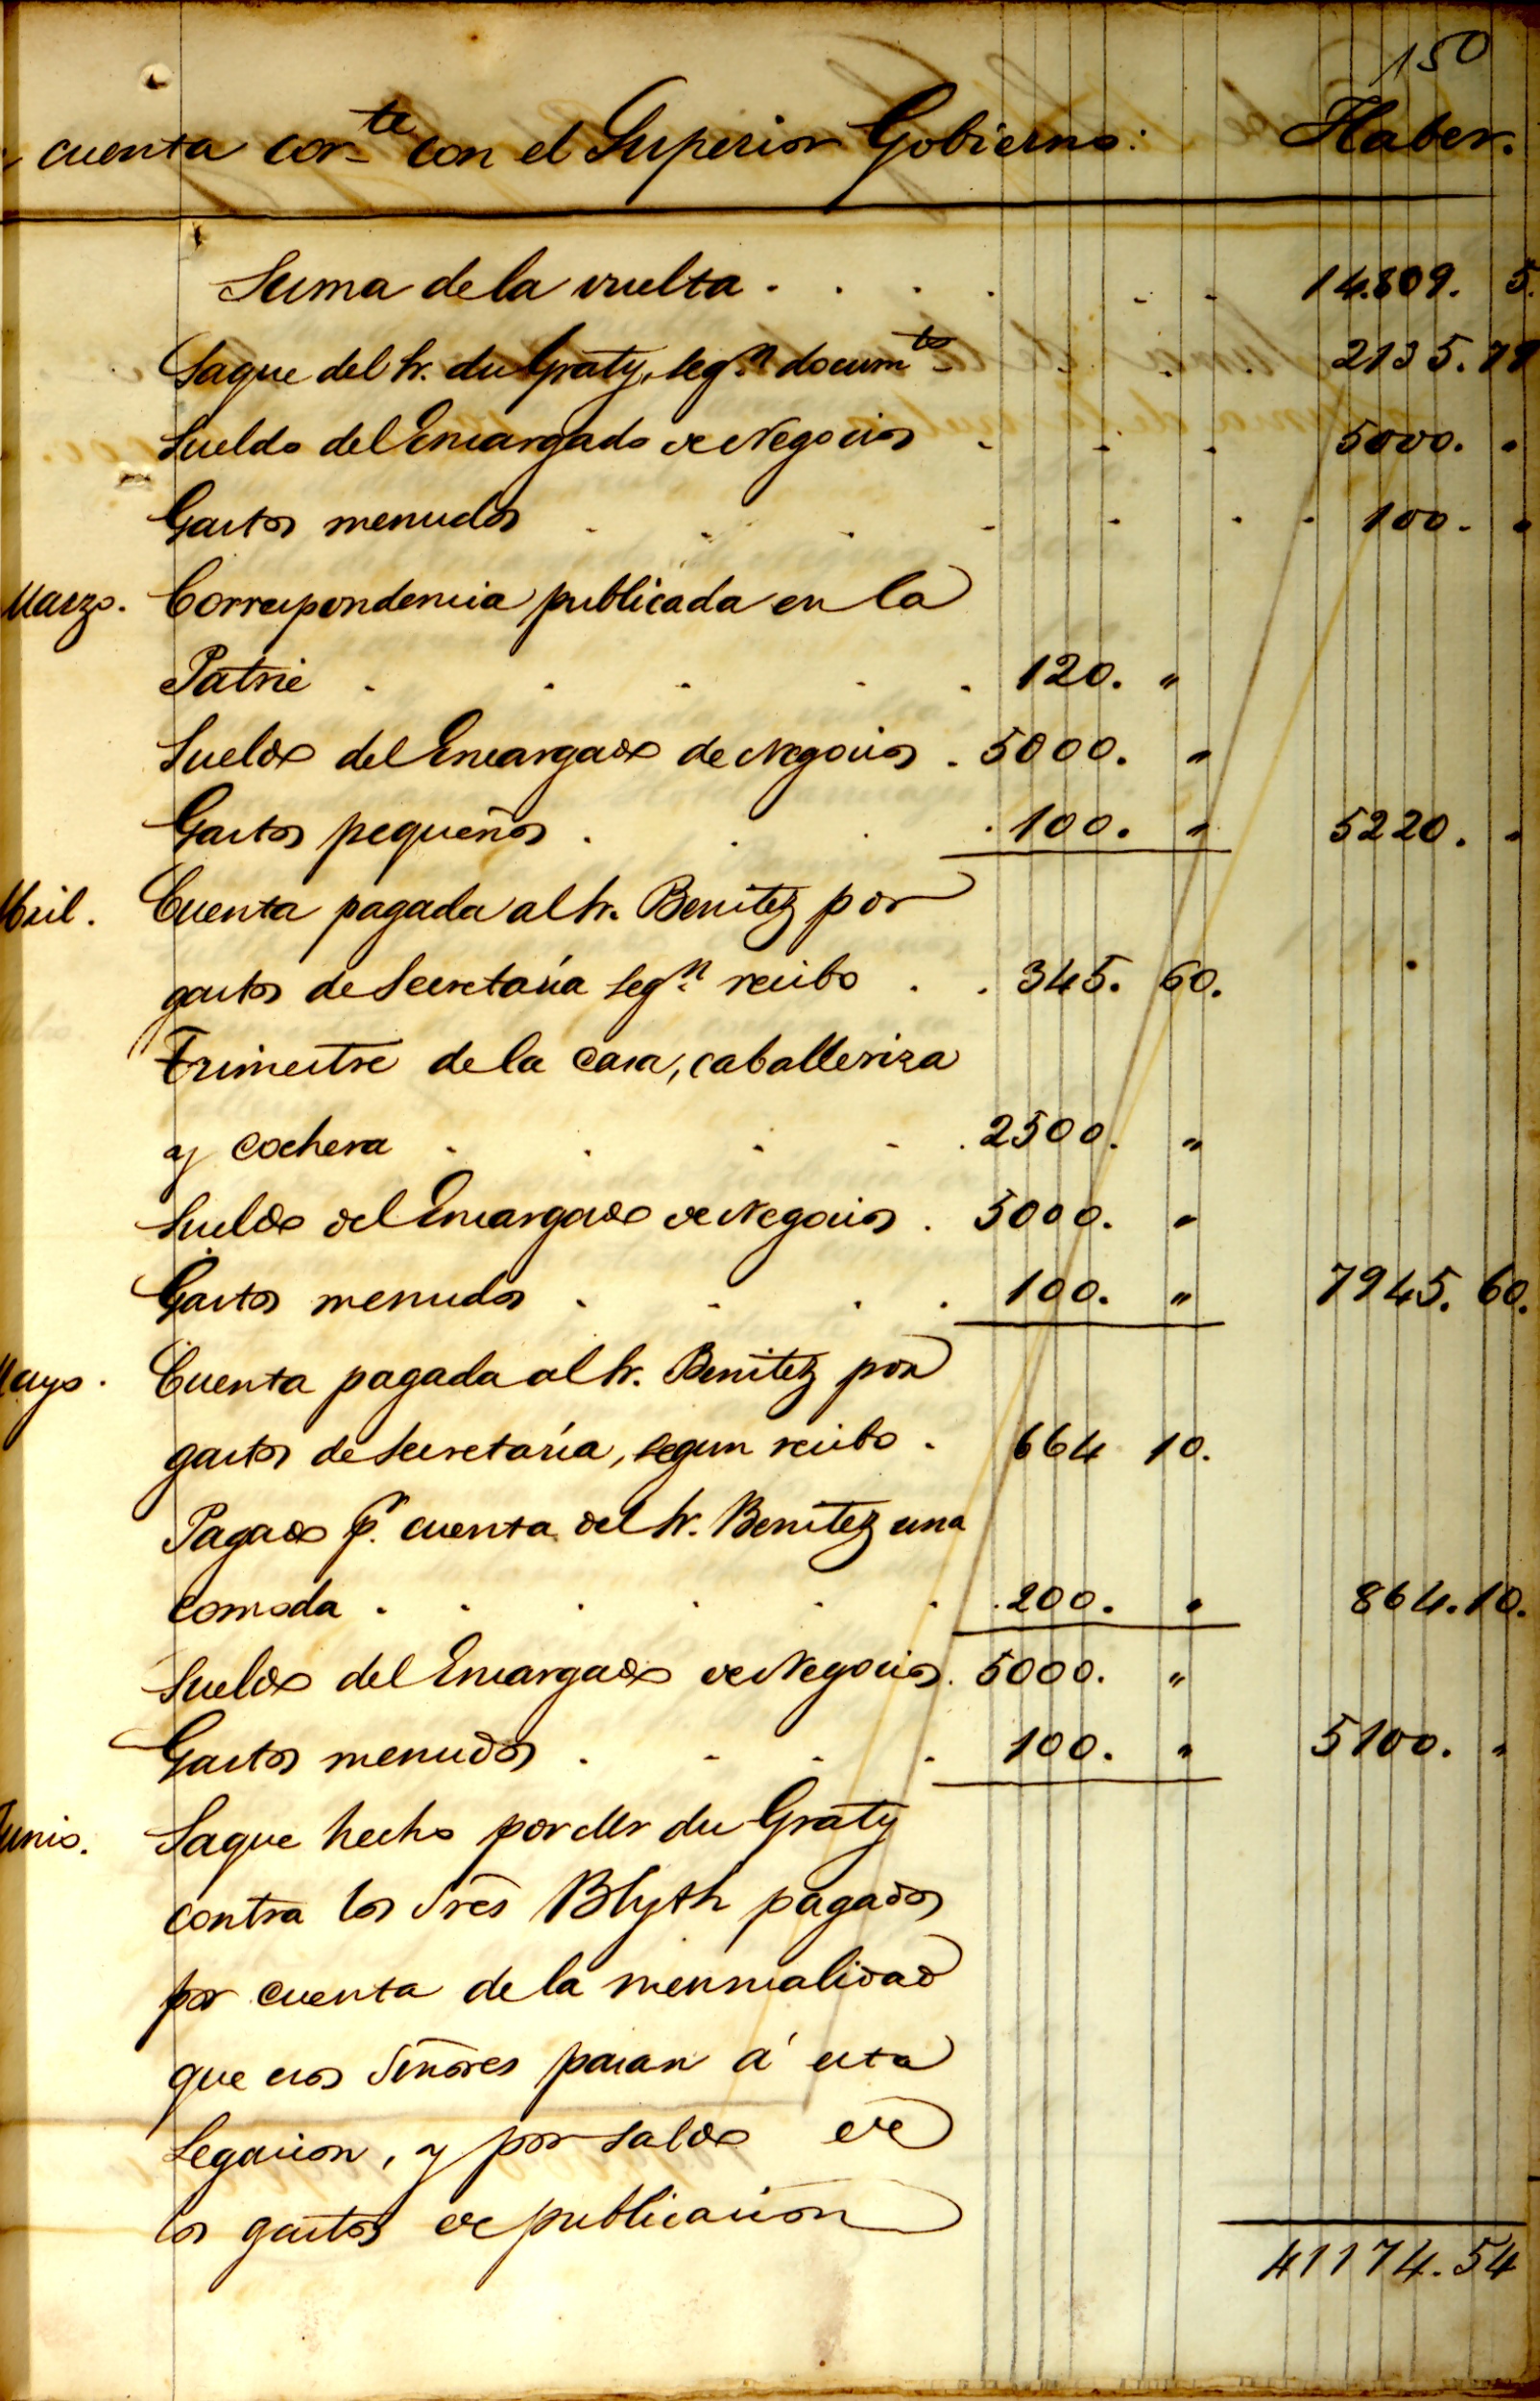 150
cuenta cor.te con el Superior Gobierno: Haber.
Suma de la vuelta . . . . 14.809. 5
Saque del Sr. du Graty, seg.n docum.tos . . . 2135. 79
Sueldo del Encargado de Negocios . . . 5000. "
Gastos menudos . . . . 100. "
Marzo. Correspondencia publicada en la
Patrie . . . . . 120. "
Sueldo del Encargado de Negocios . 5000. "
Gastos pequeños . . . . 100. " 5220. "
Abril. Cuenta pagada al Sr. Benitez por
gastos de Secretaría seg.n recibo . . 345. 60.
Trimestre de la casa, caballeriza
y cochera . . . . . 2500. "
Sueldo del Encargado de Negocios . 5000. "
Gastos menudos . . . . 100. " 7945. 60.
Mayo. Cuenta pagada al Sr. Benitez por
gastos de Secretaría, segun recibo . 664 10.
Pagado p.r cuenta del Sr. Benitez una
comoda . . . . . . 200. " 864. 10.
Sueldo del Encargado de Negocios . 5000. "
Gastos menudos . . . . 100. " 5100. "
Junio. Saque hecho por Mr du Graty
contra los Sres Blyth pagados
por cuenta de la mensualidad
que esos Señores pasan á esta
Legacion, y por saldo de
los gastos de publicacion
41174. 54